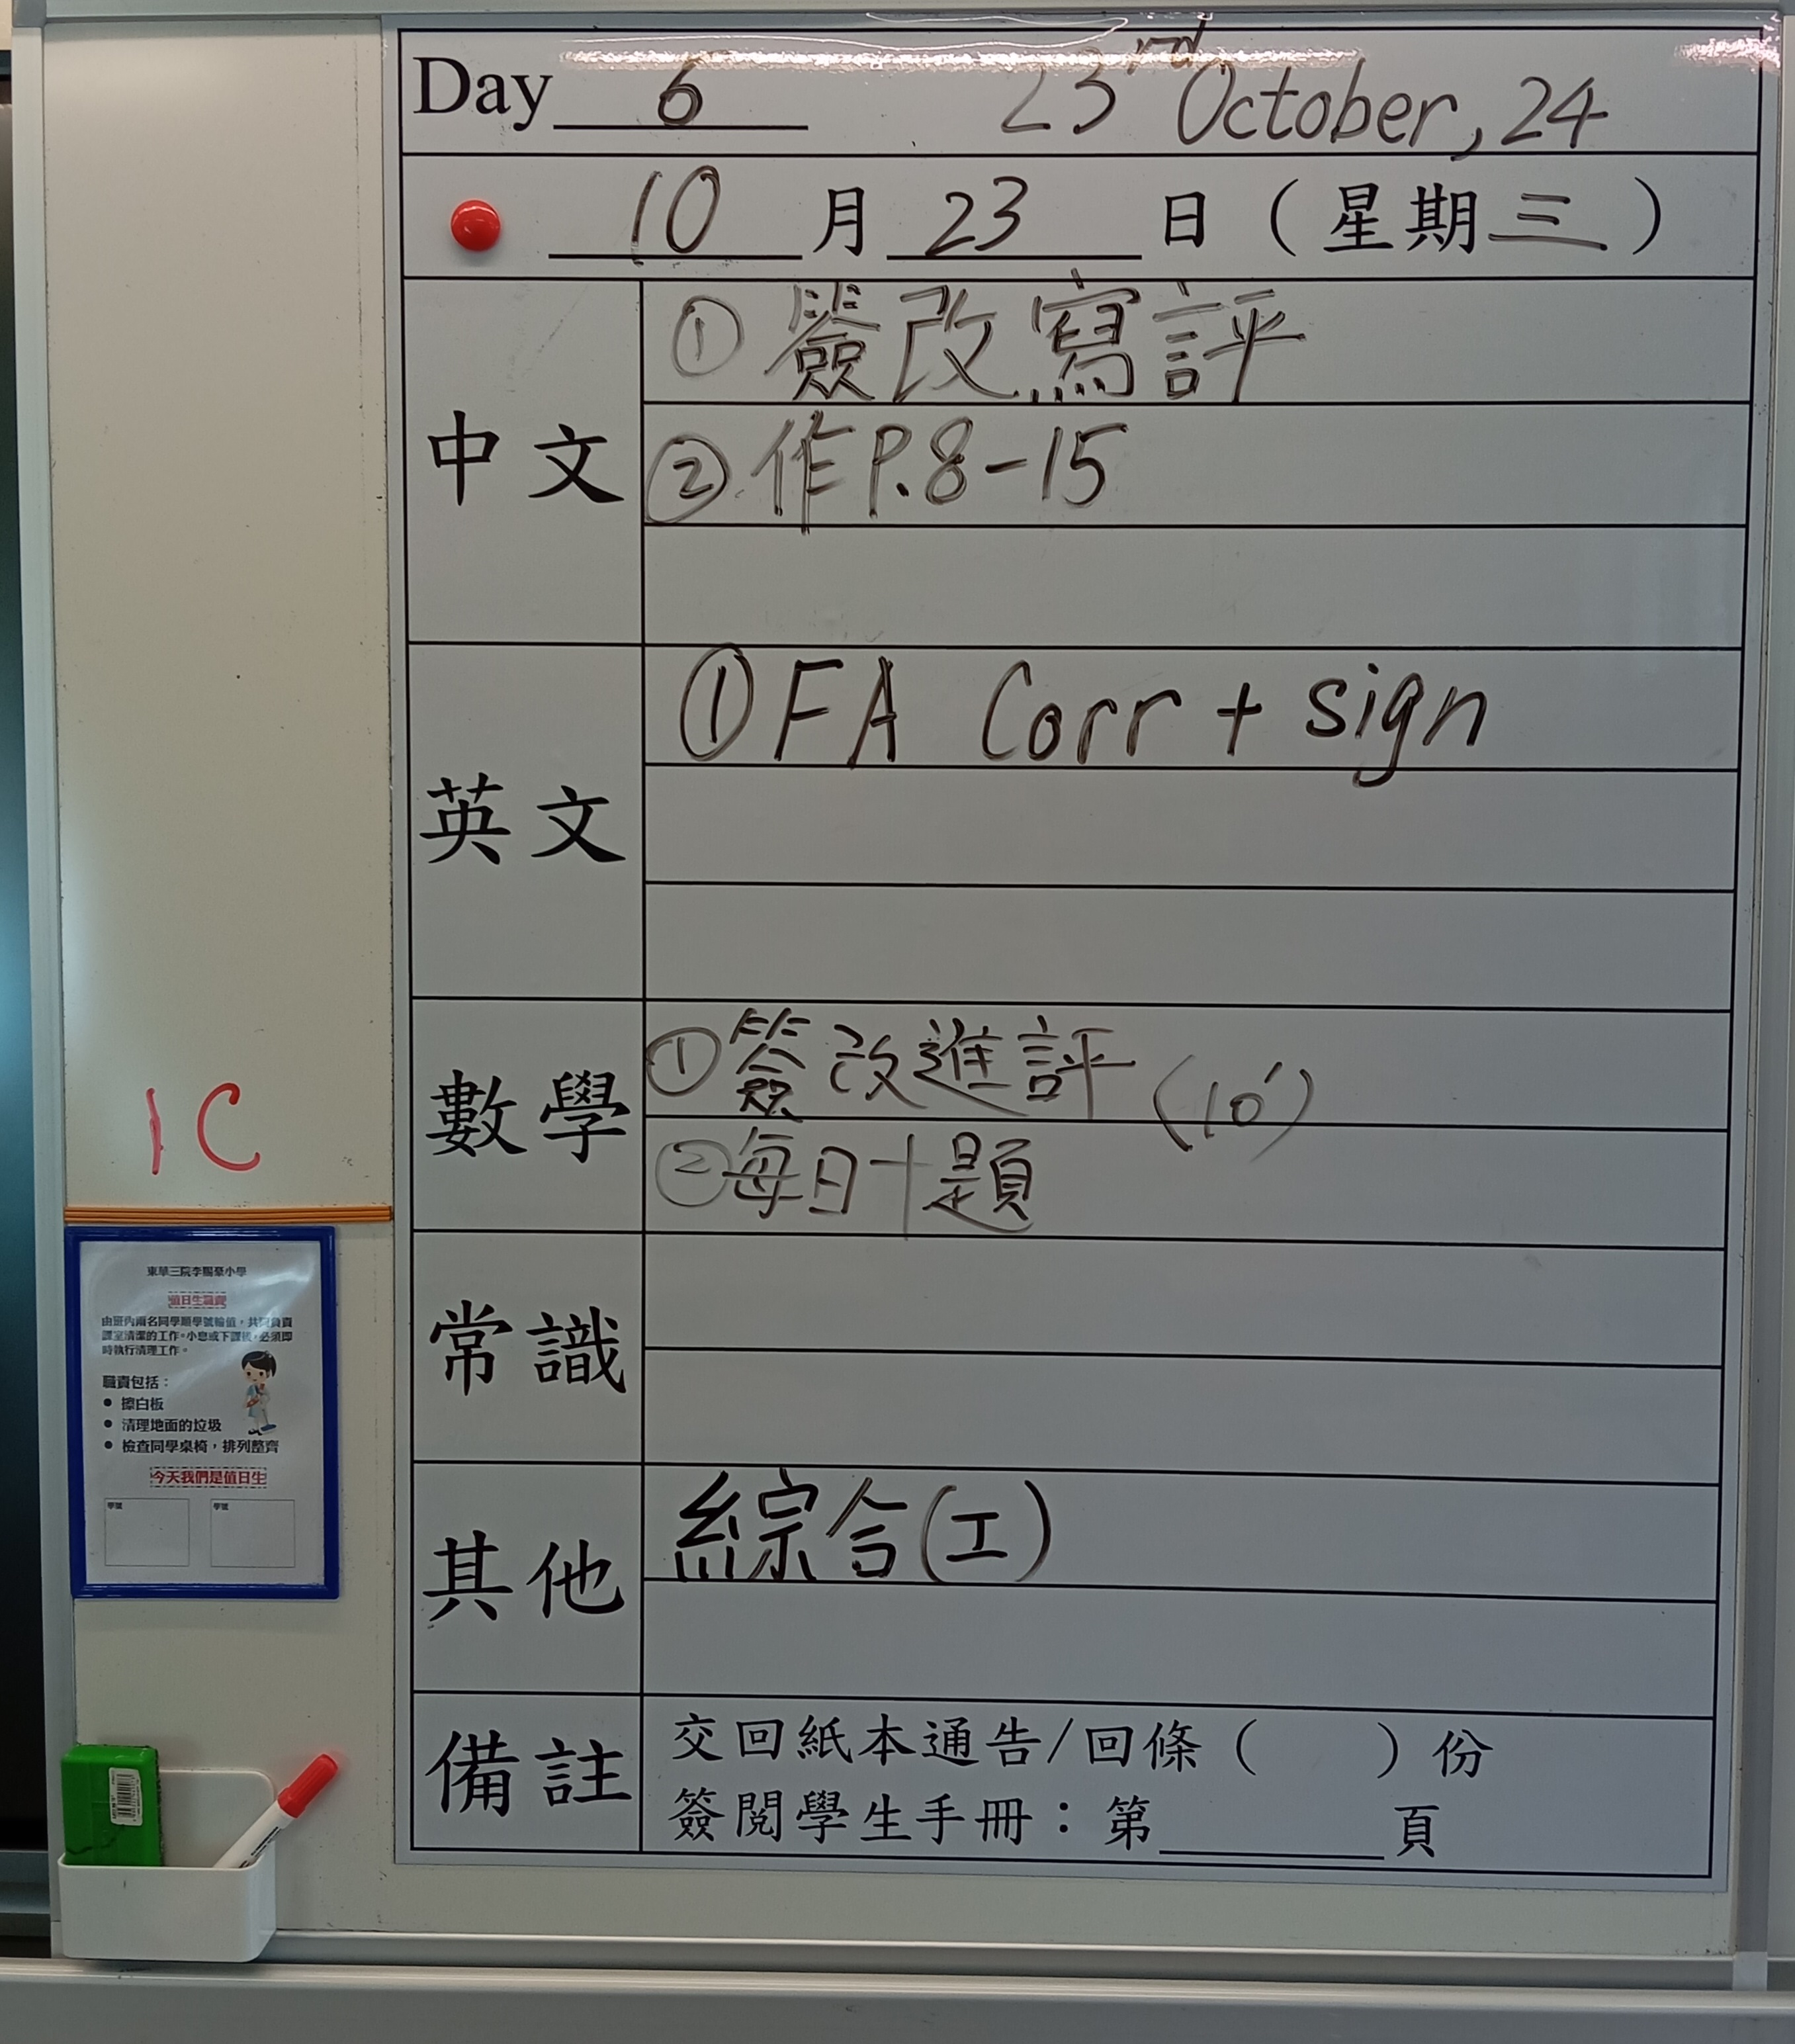 Day 6 23rd October, 24
10 月 23 日（星期三）
中文
① 簽改寫評
② 作P.8-15
英文
① FA Corr + sign
數學
① 簽改進評 (10')
② 每日十題
常識
其他
綜合(工)
備註
交回紙本通告/回條（ ）份
簽閱學生手冊：第 頁
1C
值日生職責
由班內兩名同學順學號輪值，共同負責
課室清潔的工作。小息或下課後，必須即
時執行清理工作。
職責包括：
● 擦白板
● 清理地面的垃圾
● 檢查同學桌椅，排列整齊
今天我們是值日生
學號 學號